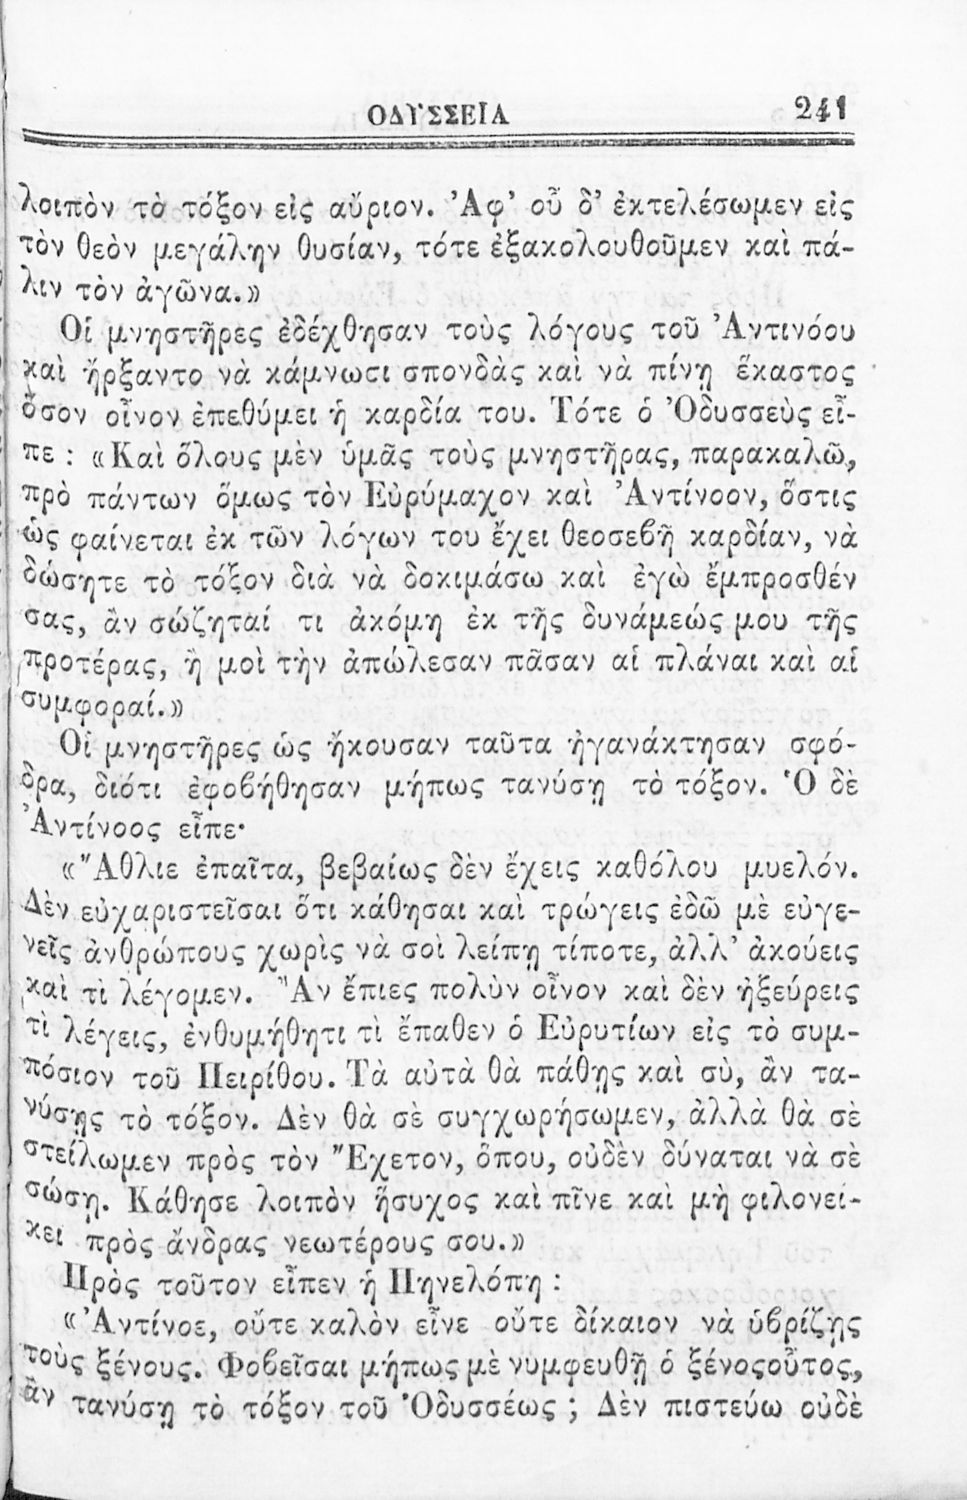 ΟΔΥΣΣΕΙΑ 241
λοιπὸν τὸ τόξον εἰς αὔριον. Ἀφ’ οὗ δ’ ἐκτελέσωμεν εἰς
τὸν θεὸν μεγάλην θυσίαν, τότε ἐξακολουθοῦμεν καὶ πά-
λιν τὸν ἀγῶνα.»
Οἱ μνηστῆρες ἐδέχθησαν τοὺς λόγους τοῦ Ἀντινόου
καὶ ἤρξαντο νὰ κάμνωσι σπονδὰς καὶ νὰ πίνῃ ἕκαστος
ὅσον οἶνον ἐπεθύμει ἡ καρδία του. Τότε ὁ Ὀδυσσεὺς εἶ-
πε : «Καὶ ὅλους μὲν ὑμᾶς τοὺς μνηστῆρας, παρακαλῶ,
πρὸ πάντων ὅμως τὸν Εὐρύμαχον καὶ Ἀντίνοον, ὅστις
ὡς φαίνεται ἐκ τῶν λόγων του ἔχει θεοσεβῆ καρδίαν, νὰ
δώσητε τὸ τόξον διὰ νὰ δοκιμάσω καὶ ἐγὼ ἔμπροσθέν
σας, ἂν σώζηταί τι ἀκόμη ἐκ τῆς δυνάμεώς μου τῆς
προτέρας, ἢ μοὶ τὴν ἀπώλεσαν πᾶσαν αἱ πλάναι καὶ αἱ
συμφοραί.»
Οἱ μνηστῆρες ὡς ἤκουσαν ταῦτα ἠγανάκτησαν σφό-
δρα, διότι ἐφοβήθησαν μήπως τανύσῃ τὸ τόξον. Ὁ δὲ
Ἀντίνοος εἶπε·
«Ἄθλιε ἐπαῖτα, βεβαίως δὲν ἔχεις καθόλου μυελόν.
Δὲν εὐχαριστεῖσαι ὅτι κάθησαι καὶ τρώγεις ἐδῶ μὲ εὐγε-
νεῖς ἀνθρώπους χωρὶς νὰ σοὶ λείπῃ τίποτε, ἀλλ’ ἀκούεις
καὶ τὶ λέγομεν. Ἂν ἔπιες πολὺν οἶνον καὶ δὲν ἠξεύρεις
τὶ λέγεις, ἐνθυμήθητι τὶ ἔπαθεν ὁ Εὐρυτίων εἰς τὸ συμ-
πόσιον τοῦ Πειρίθου. Τὰ αὐτὰ θὰ πάθῃς καὶ σὺ, ἂν τα-
νύσῃς τὸ τόξον. Δὲν θὰ σὲ συγχωρήσωμεν, ἀλλὰ θὰ σὲ
στείλωμεν πρὸς τὸν Ἔχετον, ὅπου, οὐδὲν δύναται νὰ σὲ
σώσῃ. Κάθησε λοιπὸν ἥσυχος καὶ πῖνε καὶ μὴ φιλονεί-
κει πρὸς ἄνδρας νεωτέρους σου.»
Πρὸς τοῦτον εἶπεν ἡ Πηνελόπη :
«Ἀντίνοε, οὔτε καλὸν εἶνε οὔτε δίκαιον νὰ ὑβρίζῃς
τοὺς ξένους. Φοβεῖσαι μήπως μὲ νυμφευθῇ ὁ ξένοςοὗτος,
ἂν τανύσῃ τὸ τόξον τοῦ Ὀδυσσέως ; Δὲν πιστεύω οὐδὲ